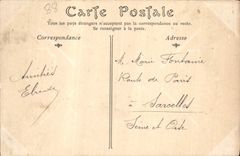 39
Carte Postale
Tous les pays étrangers n'acceptent pas la correspondance au recto.
Se renseigner à la poste.
Correspondance
Adresse
Amitiés
M. Marc Fontaine
Route de Paris
à Sarcelles
Seine et Oise